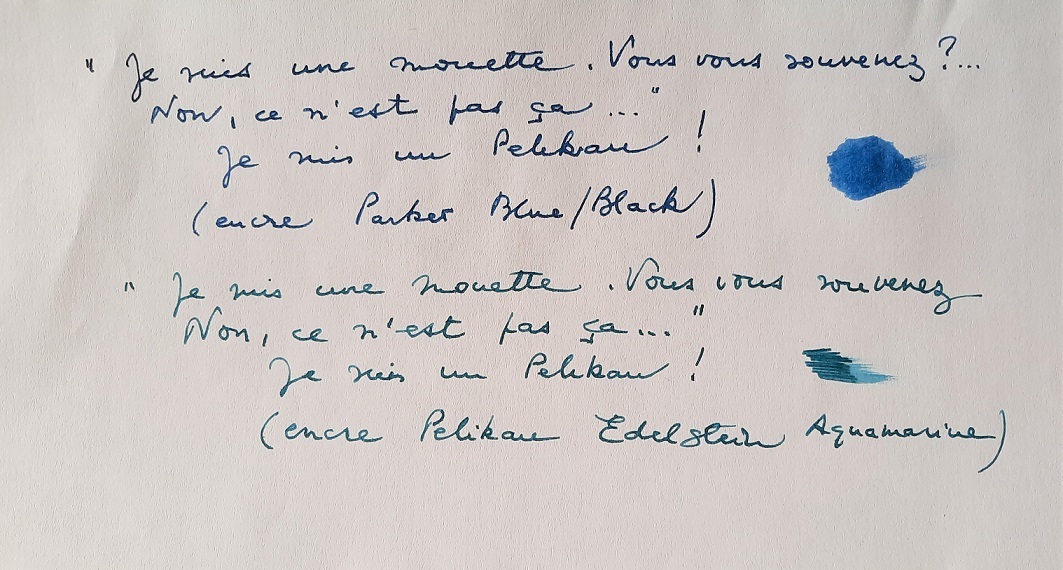 " Je suis une mouette. Vous vous souvenez ?...
Non, ce n'est pas ça ..."
Je suis un Pelikan !
(encre Parker Blue/Black)
" Je suis une mouette. Vous vous souvenez
Non, ce n'est pas ça ..."
Je suis un Pelikan !
(encre Pelikan Edelstein Aquamarine)